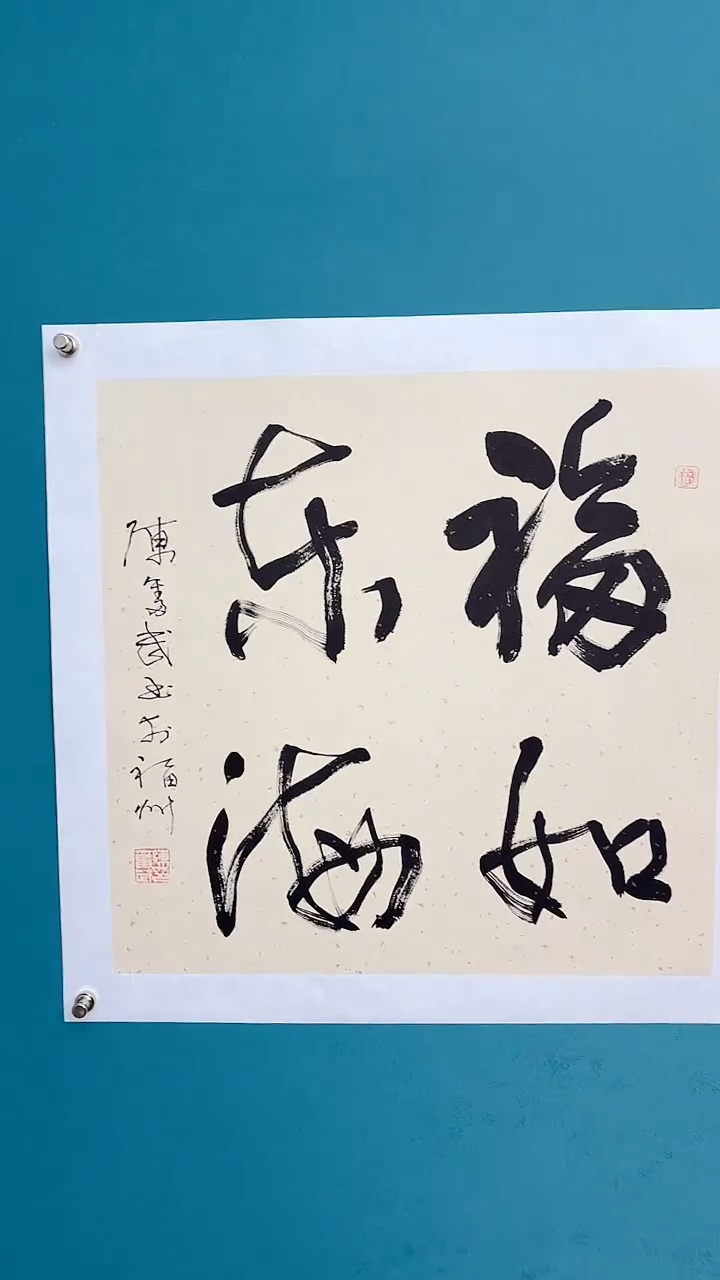 福如
东海
陈秀武书于福州